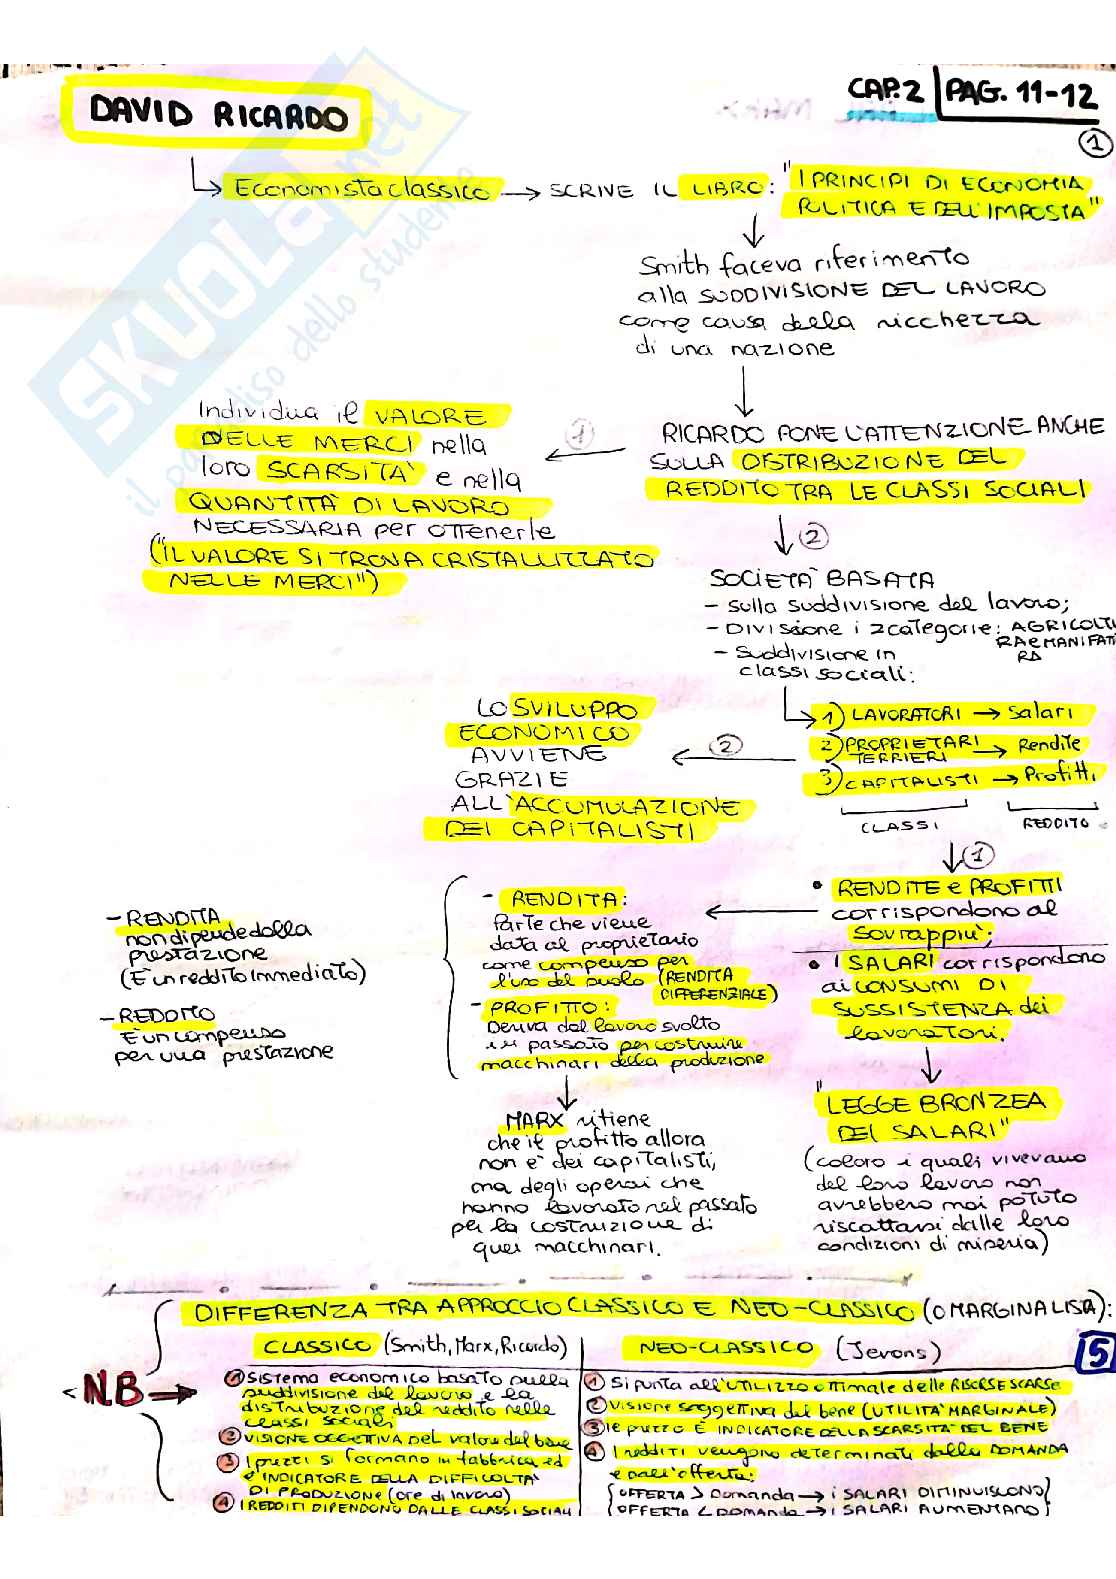 DAVID RICARDO
CAP.2 | PAG. 11-12
1
Economista classico → SCRIVE IL LIBRO: "I PRINCIPI DI ECONOMIA
POLITICA E DELL'IMPOSTA"
Smith faceva riferimento
alla SUDDIVISIONE DEL LAVORO
come causa della ricchezza
di una nazione
RICARDO PONE L'ATTENZIONE ANCHE
SULLA DISTRIBUZIONE DEL
REDDITO TRA LE CLASSI SOCIALI
1
Individua il VALORE
DELLE MERCI nella
loro SCARSITA' e nella
QUANTITA' DI LAVORO
NECESSARIA per ottenerle
("IL VALORE SI TROVA CRISTALLIZZATO
NELLE MERCI")
2
SOCIETA' BASATA
- sulla suddivisione del lavoro;
- DIVISIONE i 2 categorie: AGRICOLTU
RA e MANIFATT
RA
- Suddivisione in
classi sociali:
1) LAVORATORI → Salari
2) PROPRIETARI → Rendite
TERRIERI
3) CAPITALISTI → Profitti
CLASSI REDDITO
2
LO SVILUPPO
ECONOMICO
AVVIENE
GRAZIE
ALL'ACCUMULAZIONE
DEI CAPITALISTI
1
• RENDITE e PROFITTI
corrispondono al
Sovrappiù;
• I SALARI corrispondono
ai CONSUMI DI
SUSSISTENZA dei
lavoratori.
- RENDITA:
Parte che viene
data al proprietario
come compenso per
l'uso del suolo (RENDITA
DIFFERENZIALE)
- PROFITTO:
Deriva dal lavoro svolto
in passato per costruire
macchinari della produzione
- RENDITA
non dipende dalla
prestazione
(È un reddito immediato)
- REDDITO
È un compenso
per una prestazione
MARX ritiene
che il profitto allora
non è dei capitalisti,
ma degli operai che
hanno lavorato nel passato
per la costruzione di
quei macchinari.
"LEGGE BRONZEA
DEI SALARI"
(coloro i quali vivevano
del loro lavoro non
avrebbero mai potuto
riscattarsi dalle loro
condizioni di miseria)
DIFFERENZA TRA APPROCCIO CLASSICO E NEO-CLASSICO (O MARGINALISTA):
N.B →
CLASSICO (Smith, Marx, Ricardo)
1 Sistema economico basato sulla
suddivisione del lavoro e la
distribuzione del reddito nelle
classi sociali
2 VISIONE OGGETTIVA DEL valore del bene
3 I prezzi si formano in fabbrica ed
è INDICATORE DELLA DIFFICOLTA'
DI PRODUZIONE (ore di lavoro)
4 I REDDITI DIPENDONO DALLE CLASSI SOCIALI
NEO-CLASSICO (Jevons)
5
1 Si punta all'UTILIZZO ottimale delle RISORSE SCARSE
2 VISIONE soggettiva dei bene (UTILITA' MARGINALE)
3 il prezzo È INDICATORE DELLA SCARSITA' DEL BENE
4 I redditi vengono determinati dalla DOMANDA
e dall'offerta:
OFFERTA > Domanda → i SALARI DIMINUISCONO
OFFERTA < Domanda → i SALARI AUMENTANO
SKUOLA.net
il paradiso dello studente